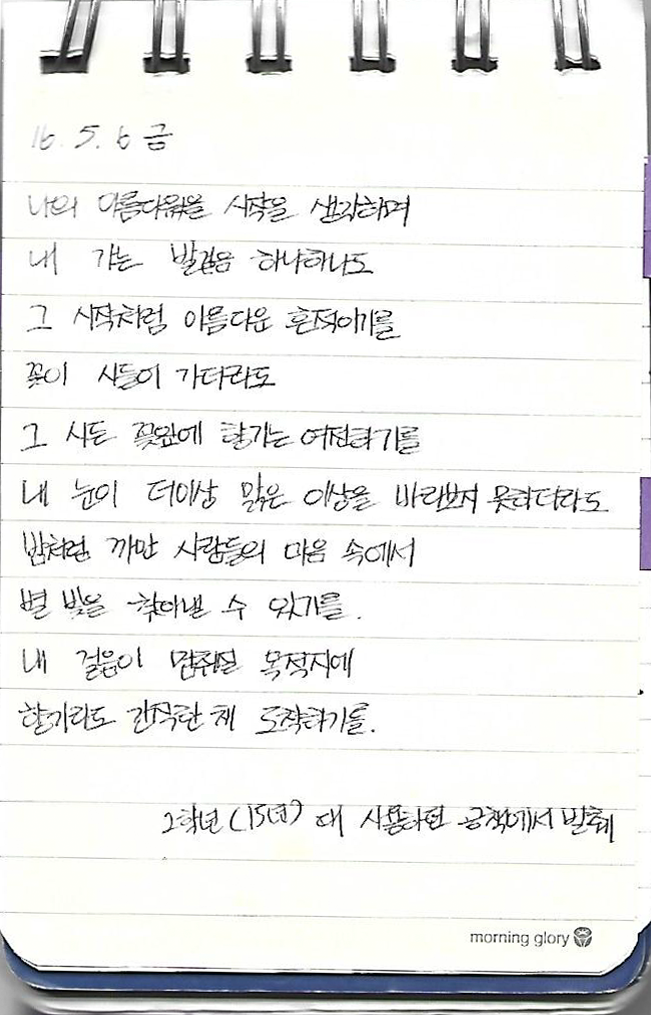 16. 5. 6 금
나의 아름다웠을 시작을 생각하며
내 가는 발걸음 하나하나도
그 시작처럼 아름다운 흔적이기를
꽃이 시들어 가더라도
그 시든 꽃잎에 향기는 여전하기를
내 눈이 더이상 맑은 이상을 바라보지 못하더라도
밤처럼 까만 사람들의 마음 속에서
별 빛을 찾아낼 수 있기를.
내 걸음이 멈춰질 목적지에
향기라도 간직한 채 도착하기를.
2학년(15년) 때 사용하던 공책에서 발췌
morning glory